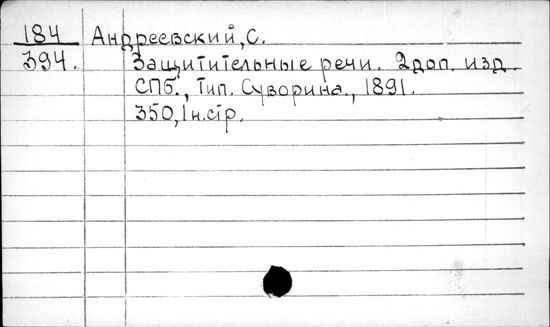 184 Андреевский, С.
394. Защитительные речи. 2доп. изд.
СПб., Тип. Суворина., 1891.
350, 1 н.стр.